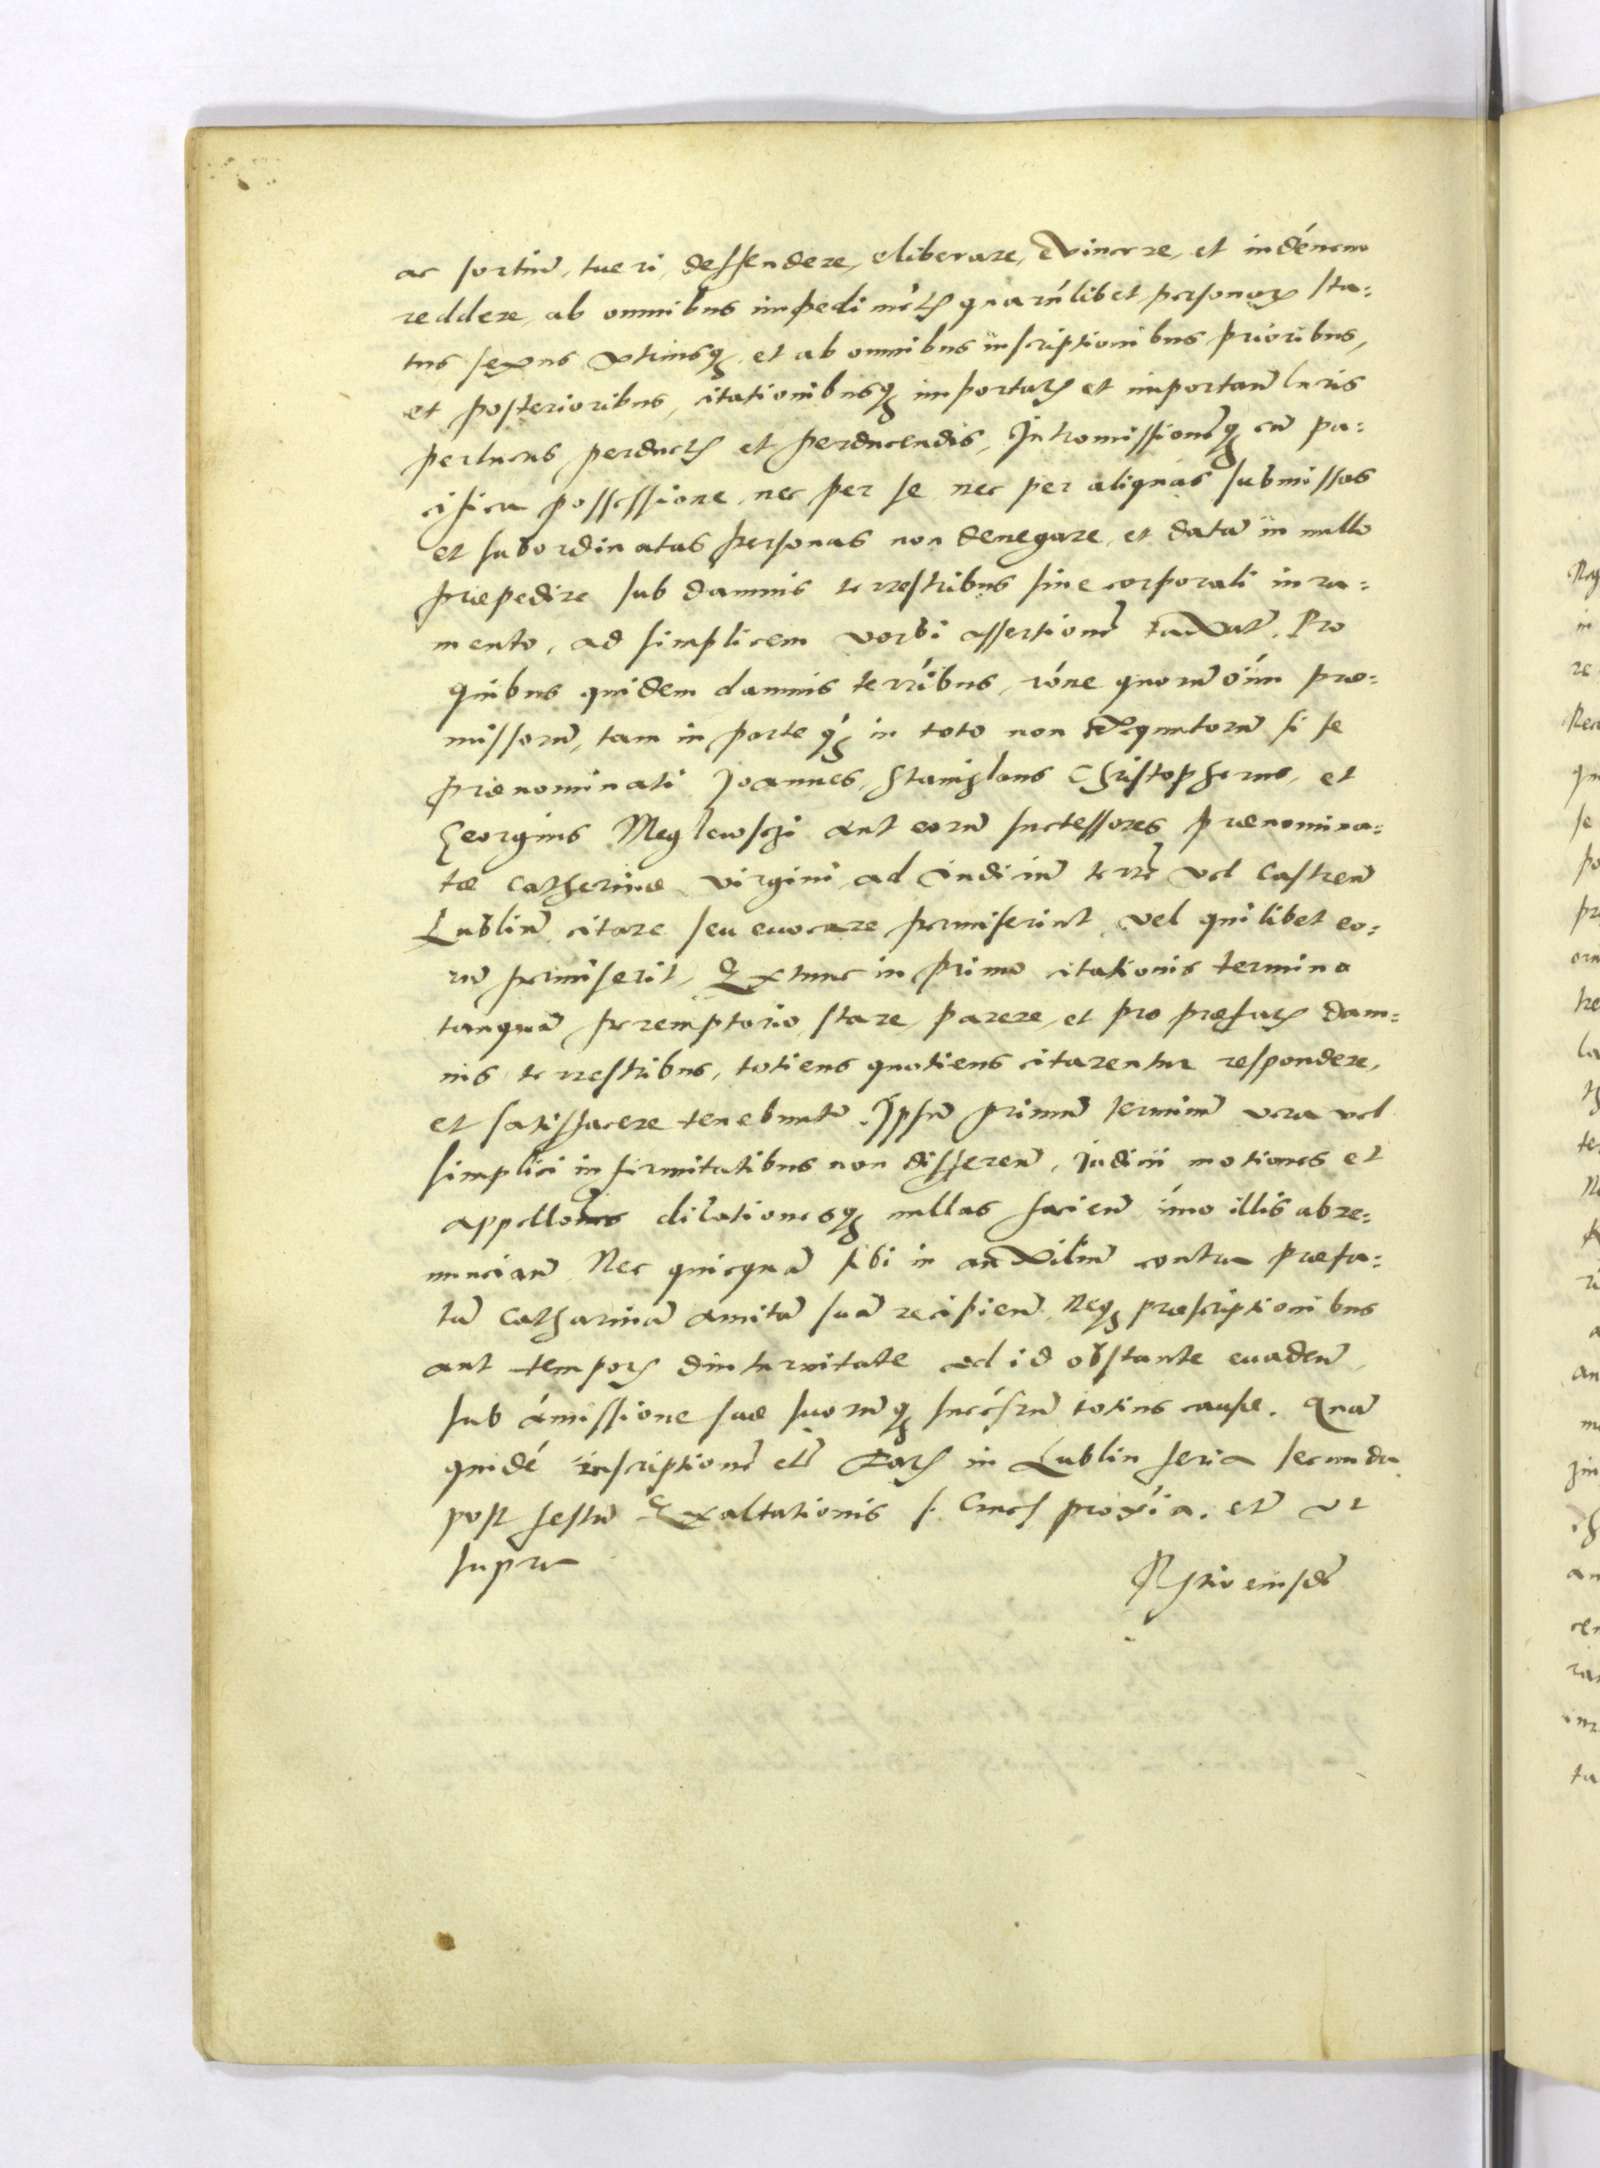 ac sortium, tueri, deffendere, eliberare, evincere, et indénem
reddere, ab omnibus impedimētis quarūlibet personarū sta=
tus sexus vtriusq et ab omnibus inscriptionibus prioribus,
et posterioribus, citationibusq importatis et importan̄ Iuris
perlucris perductis et perducendis, Intromissionēq cū pa=
cifica possessione, nec per se nec per aliquas submissas
et subordinatas personas non denegare, et datā in nullo
præpedire sub damnis terrestribus sine corporali iura=
mento, ad simplicem verbi assertionē taxatis. Pro
quibus quidem damnis terrīibus, rōne quorū oīum præ=
missorū, tam in parte q̄ in toto non exequutorū si se
prænominati Joannes, Stanislaus Christopherus, et
Georgius Meglewski aut eorū successores prænomina=
tæ Catherinæ virgini ad iudiciū terrē vel Castren̄
Lublinē citare seu euocare permiserint vel quilibet eo=
rū permiserit, Extunc in primo citationis termino
tanquā peremptorio, stare, parere, et pro præfatis dam=
nis terrestribus, totiens quotiens citarentur respondere,
et satisfacere tenebuntur. Ipsum primū terminū vera vel
simplici infirmitatibus non differen̄, Iudicii motiones et
appellōnes dilationesq nullas facien̄ imo illis abre=
nuncian̄. Nec quicquā sibi in auxiliū contra præfa=
tā Catharinā amitā suā recipien̄. Neq præscriptionibus
aut temporis diuturnitate ad id obstante euaden̄
sub ámissione suæ suorumq succēsrum totius causæ. Quā
quidé inscriptionē etc̄ Datis in Lublin feria secunda
post festū Exaltationis s. Crucis proxīa. etc̄ vt
supra
Rstio eiusdē